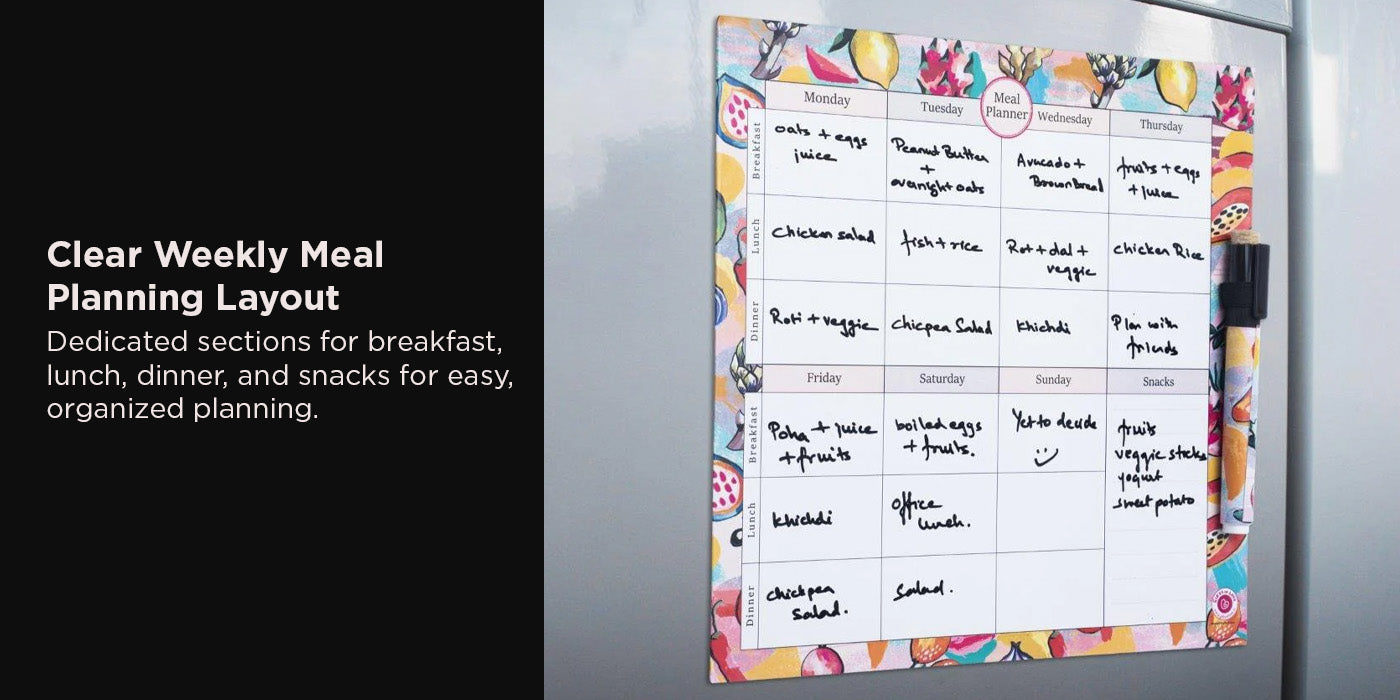 Clear Weekly Meal
Planning Layout
Dedicated sections for breakfast,
lunch, dinner, and snacks for easy,
organized planning.
Meal
Planner
Monday
Tuesday
Wednesday
Thursday
Breakfast
oats + eggs
juice
Peanut Butter
+
overnight oats
Avacado +
Brown Bread
fruits + eggs
+ juice
Lunch
chicken salad
fish + rice
Rot + dal +
veggie
chicken Rice
Dinner
Roti + veggie
chicpea Salad
khichdi
Plan with
friends
Friday
Saturday
Sunday
Snacks
Breakfast
Poha + juice
+ fruits
boiled eggs
+ fruits.
Yet to decide
fruits
veggie sticks
yogurt
sweet potato
Lunch
khichdi
office
lunch.
Dinner
chickpea
salad.
Salad.